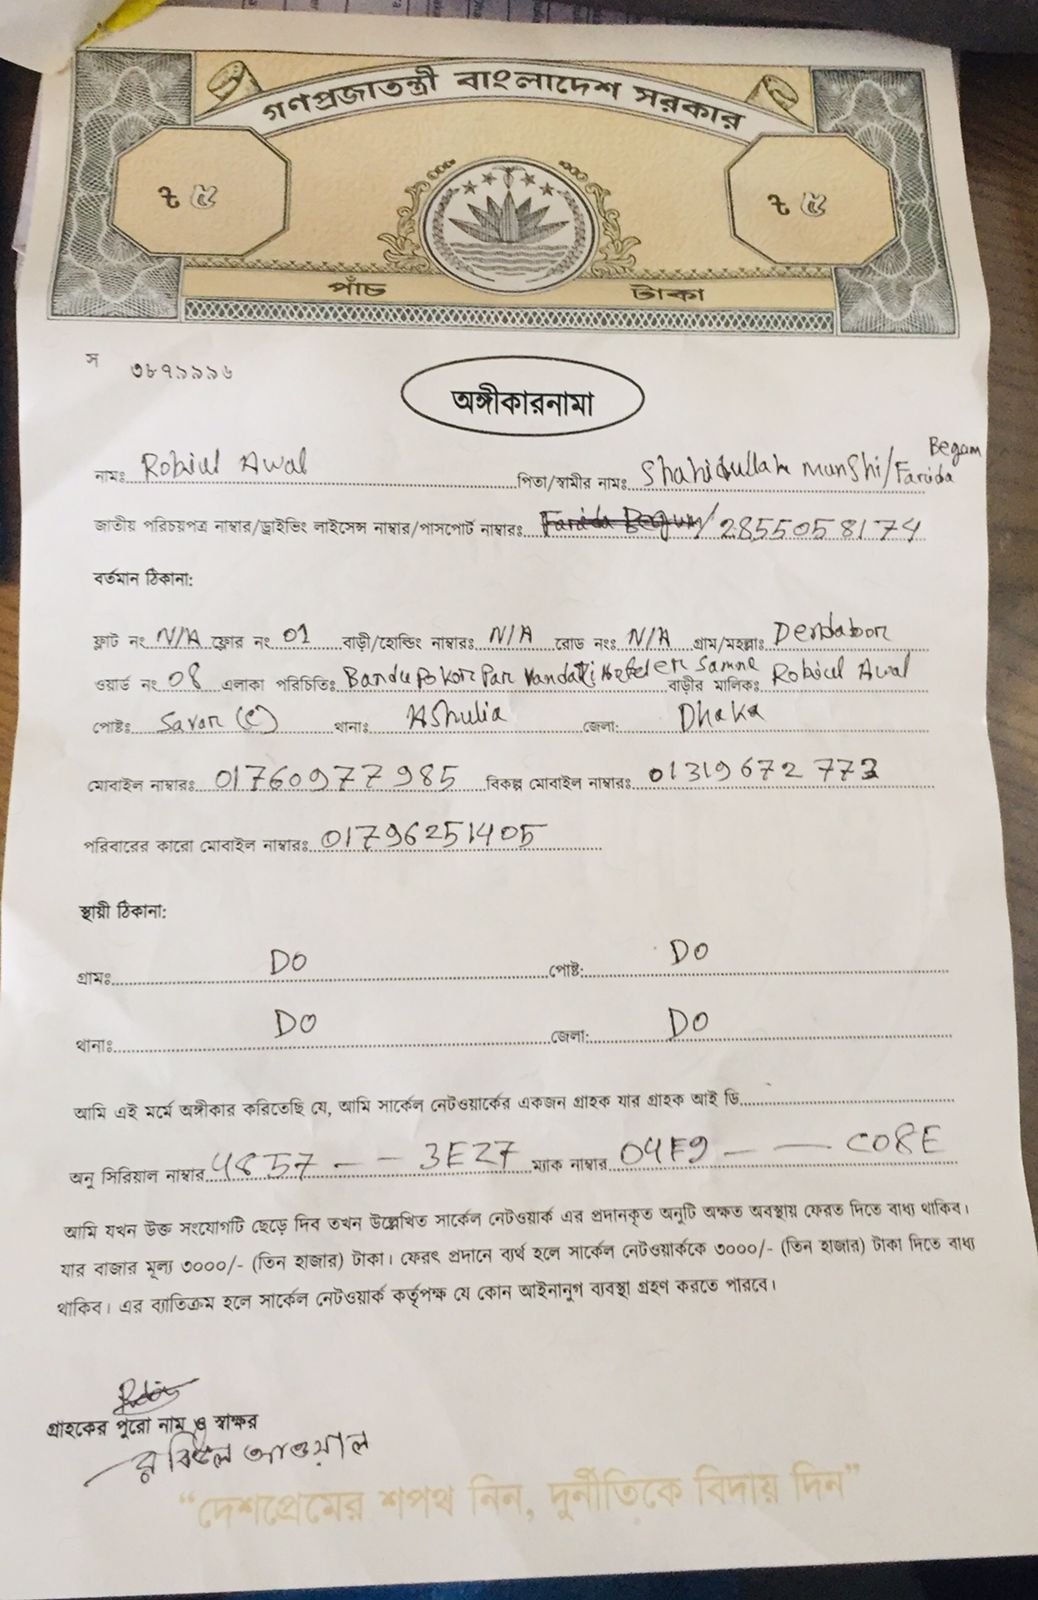 গণপ্রজাতন্ত্রী বাংলাদেশ সরকার
৳ ৫ ৳ ৫
পাঁচ টাকা
স ৩৮৭১১১৬
অঙ্গীকারনামা
নামঃ Robiul Awal পিতা/স্বামীর নামঃ Shahidullah Munshi/Farida Begam
জাতীয় পরিচয়পত্র নাম্বার/ড্রাইভিং লাইসেন্স নাম্বার/পাসপোর্ট নাম্বারঃ Farida Begum/2855058174
বর্তমান ঠিকানা:
ফ্লাট নং N/A ফ্লোর নং 01 বাড়ী/হোল্ডিং নাম্বারঃ N/A রোড নংঃ N/A গ্রাম/মহল্লাঃ Dendabor
ওয়ার্ড নং 08 এলাকা পরিচিতিঃ Bandu Pokor Par Samne বাড়ীর মালিকঃ Robiul Awal
পোষ্টঃ Savar (C) থানাঃ Ashulia জেলা: Dhaka
মোবাইল নাম্বারঃ 01760977985 বিকল্প মোবাইল নাম্বারঃ 01319672773
পরিবারের কারো মোবাইল নাম্বারঃ 01796251405
স্থায়ী ঠিকানা:
গ্রামঃ DO পোষ্ট: DO
থানাঃ DO জেলা: DO
আমি এই মর্মে অঙ্গীকার করিতেছি যে, আমি সার্কেল নেটওয়ার্কের একজন গ্রাহক যার গ্রাহক আই ডি
অনু সিরিয়াল নাম্বার 4857 - - 3E27 ম্যাক নাম্বার 04F9 - - C08E
আমি যখন উক্ত সংযোগটি ছেড়ে দিব তখন উল্লেখিত সার্কেল নেটওয়ার্ক এর প্রদানকৃত অনুটি অক্ষত অবস্থায় ফেরত দিতে বাধ্য থাকিব।
যার বাজার মূল্য ৩০০০/- (তিন হাজার) টাকা। ফেরৎ প্রদানে ব্যর্থ হলে সার্কেল নেটওয়ার্ককে ৩০০০/- (তিন হাজার) টাকা দিতে বাধ্য
থাকিব। এর ব্যাতিক্রম হলে সার্কেল নেটওয়ার্ক কর্তৃপক্ষ যে কোন আইনানুগ ব্যবস্থা গ্রহণ করতে পারবে।
গ্রাহকের পুরো নাম ও স্বাক্ষর
রবিউল আওয়াল
“দেশপ্রেমের শপথ নিন, দুর্নীতিকে বিদায় দিন”